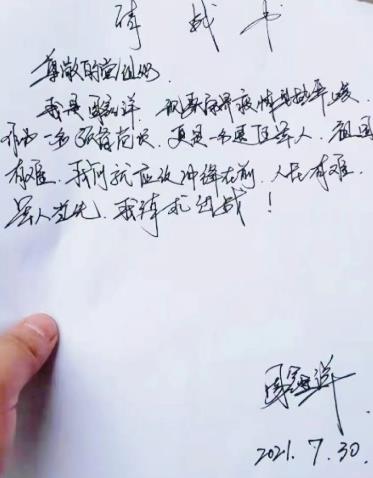 请战书
尊敬的党组织
我是 现张家界疫情
作为一名 更是一名退伍军人、祖国
有难、我们就应该冲锋在前、人民有难、
军人当先、我请求出战!
2021.7.30.